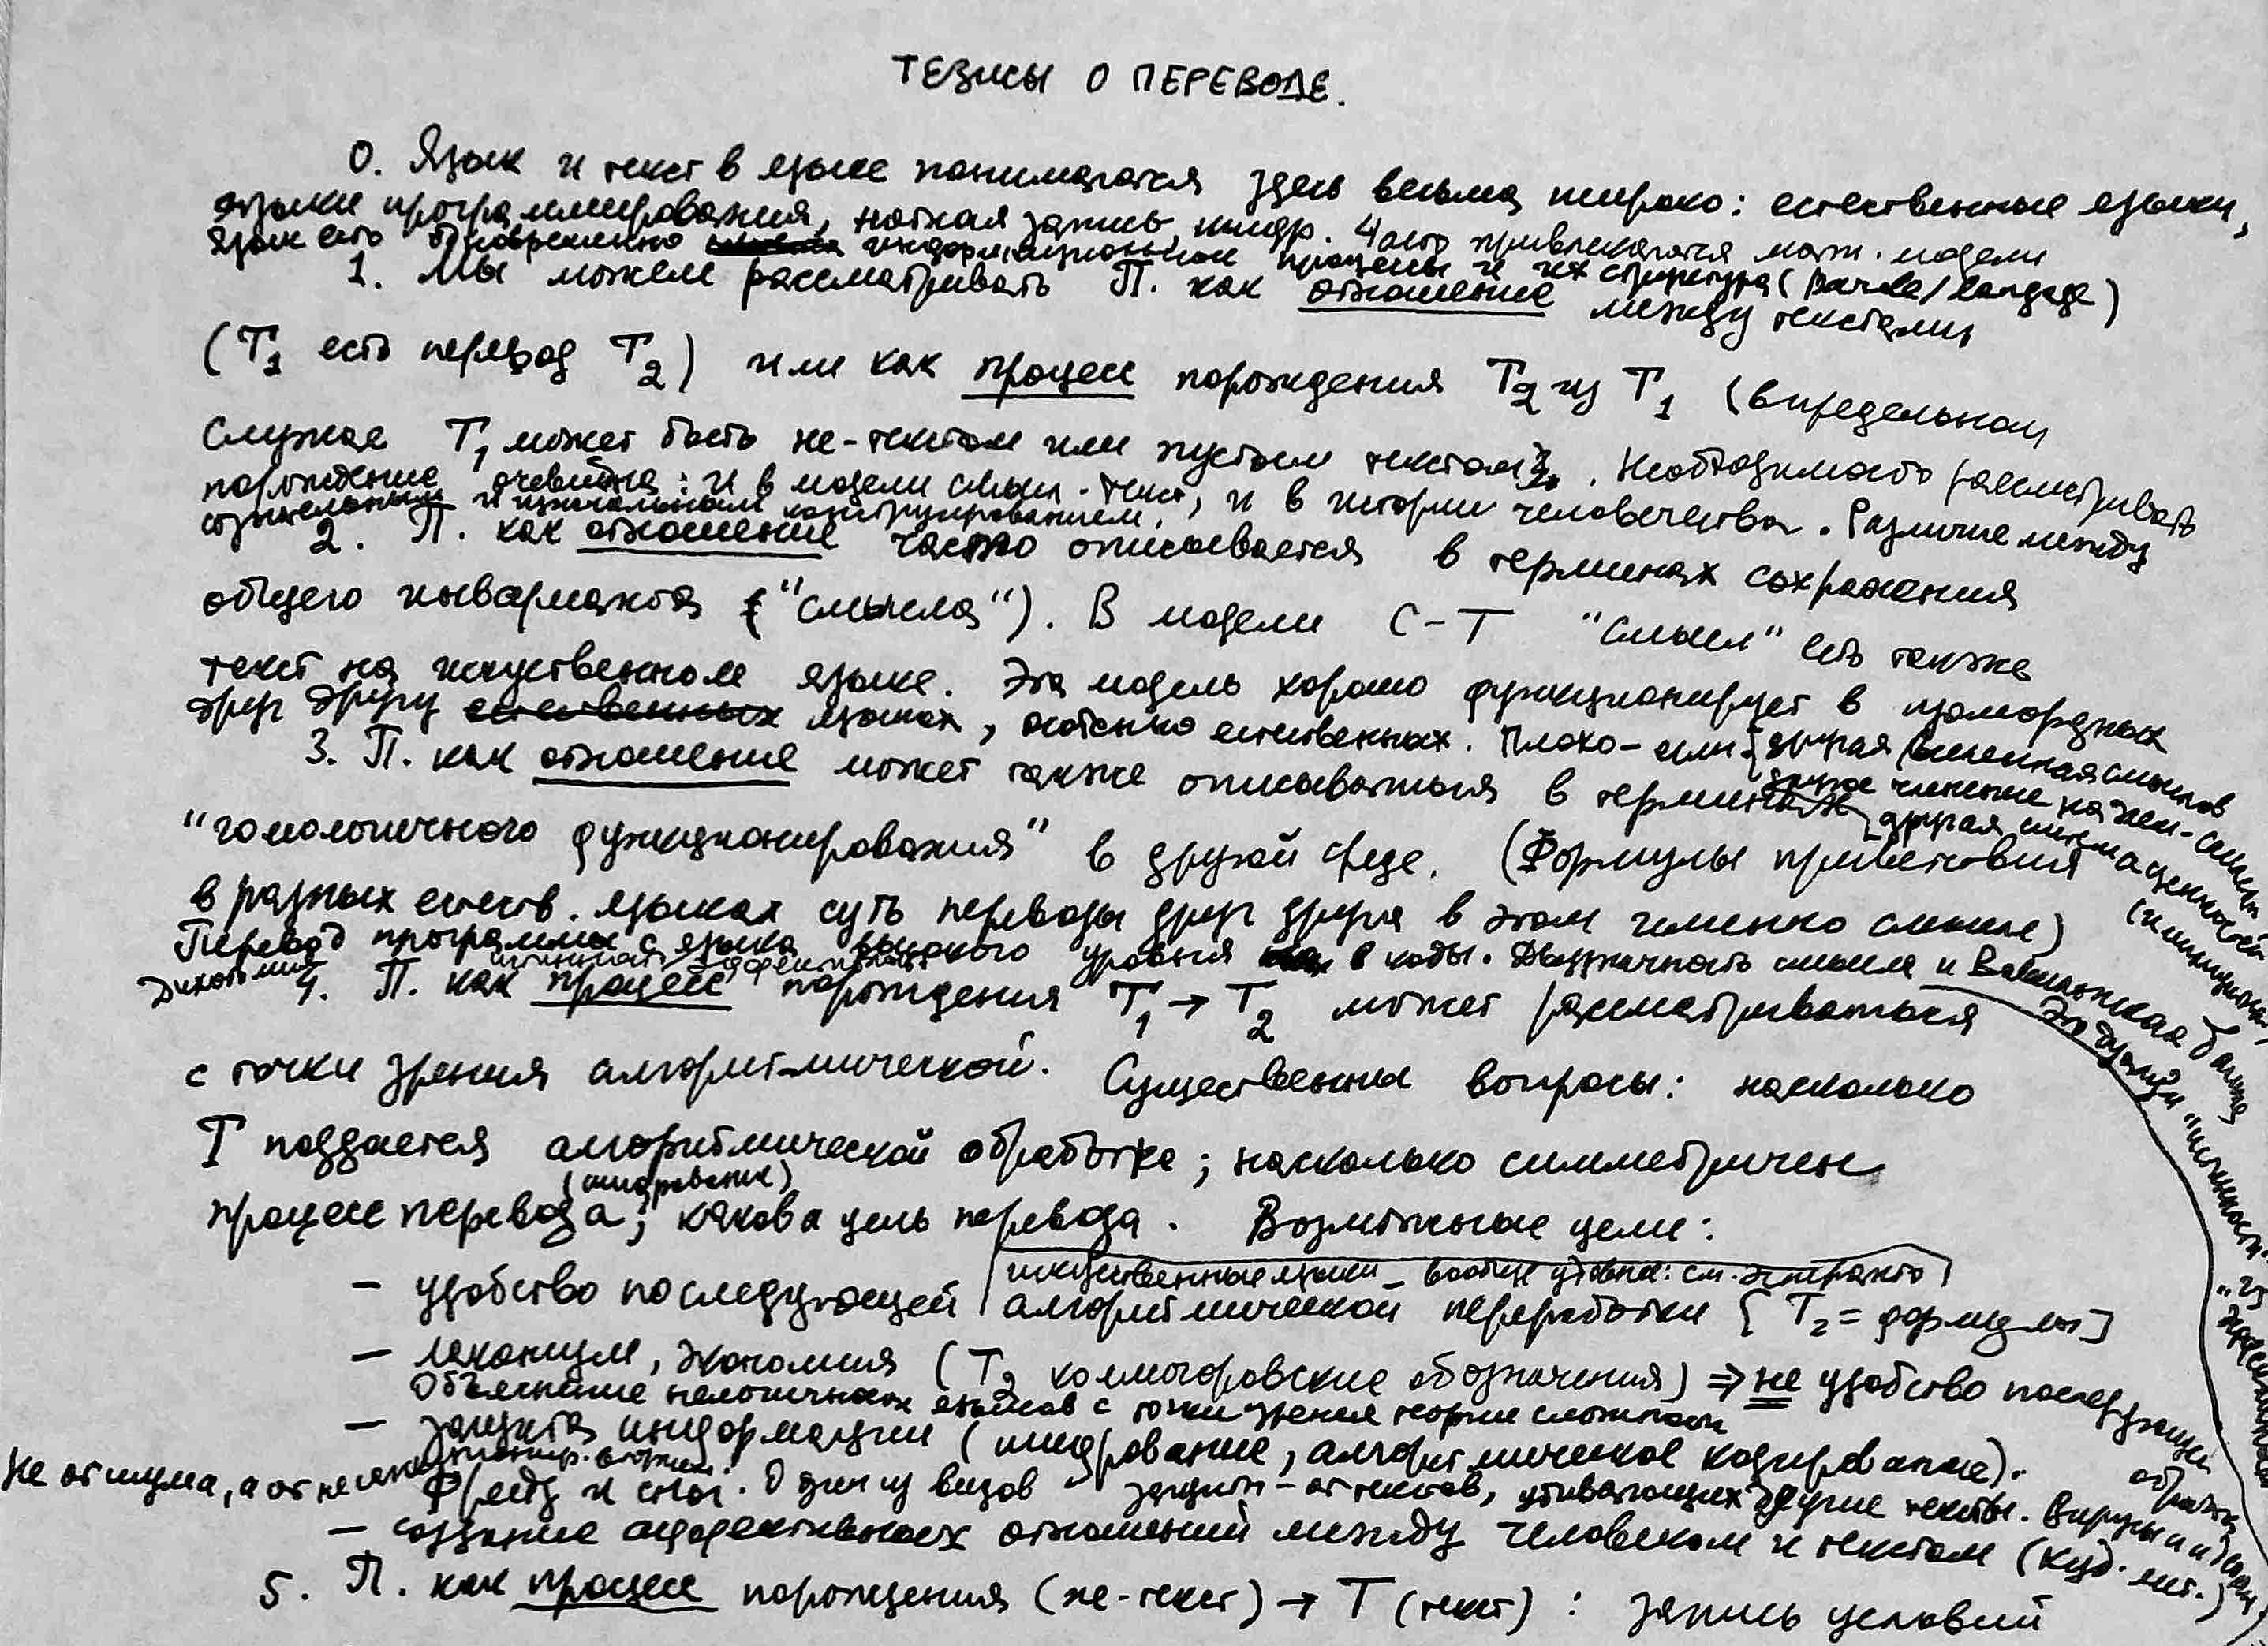 ТЕЗИСЫ О ПЕРЕВОДЕ.
0. Язык и текст в языке понимаются здесь весьма широко: естественные языки,
языки программирования, нотная запись, шифр. Часто привлекаются мат. модели
Язык есть одновременно информационные процессы и их структура (parole/langage)
1. Мы можем рассматривать П. как отношение между текстами
(Т1 есть перевод Т2) или как процесс порождения Т2 из Т1 (в предельном
случае Т1 может быть не-текстом или пустым текстом). Необходимость рассматривать
порождение очевидна: и в модели смысл-текст, и в истории человечества. Различие между
и изначальным конструированием.
2. П. как отношение часто описывается в терминах сохранения
общего инварианта ("смысла"). В модели С-Т "смысл" есть также
текст на искуственном языке. Эта модель хорошо функционирует в изоморфных
друг другу естественных языках, особенно естественных. Плохо - если другая вселенная смыслов
другое членение на жен-
другая система ценностей
3. П. как отношение может также описываться в терминах
"гомологичного функционирования" в другой среде. (Формулы приветствия
в разных естеств. языках суть переводы друг друга в этом именно смысле)
Перевод программы с языка высокого уровня в коды. Двузначность смысла и Вавилонская башня
Дихотомия истинность эффективность
4. П. как процесс порождения Т1 → Т2 может рассматриваться
с точки зрения алгоритмической. Существенны вопросы: насколько
Т поддается алгоритмической обработке; насколько симметричен
(шифрование)
процесс перевода; какова цель перевода. Возможные цели:
искуственные языки - вообще удобнее: см. эсперанто
- удобство последующей алгоритмической переработки [Т2 = формулы]
- лаконизм, экономия (Т2 колмогоровские обозначения) ⇒ не удобство последующей обработки
Объяснение нелогичных языков с точки зрения теории сложности
- защита информации (шифрование, алгоритмическое кодирование).
Не от шума, а от
Фрейд и сны. Один из видов защиты - от текстов, убивающих другие текты. Вирусы и
- создание аффективных отношений между человеком и текстом (худ. лит.)
5. П. как процесс порождения (не-текст) → Т (текст) : запись условий